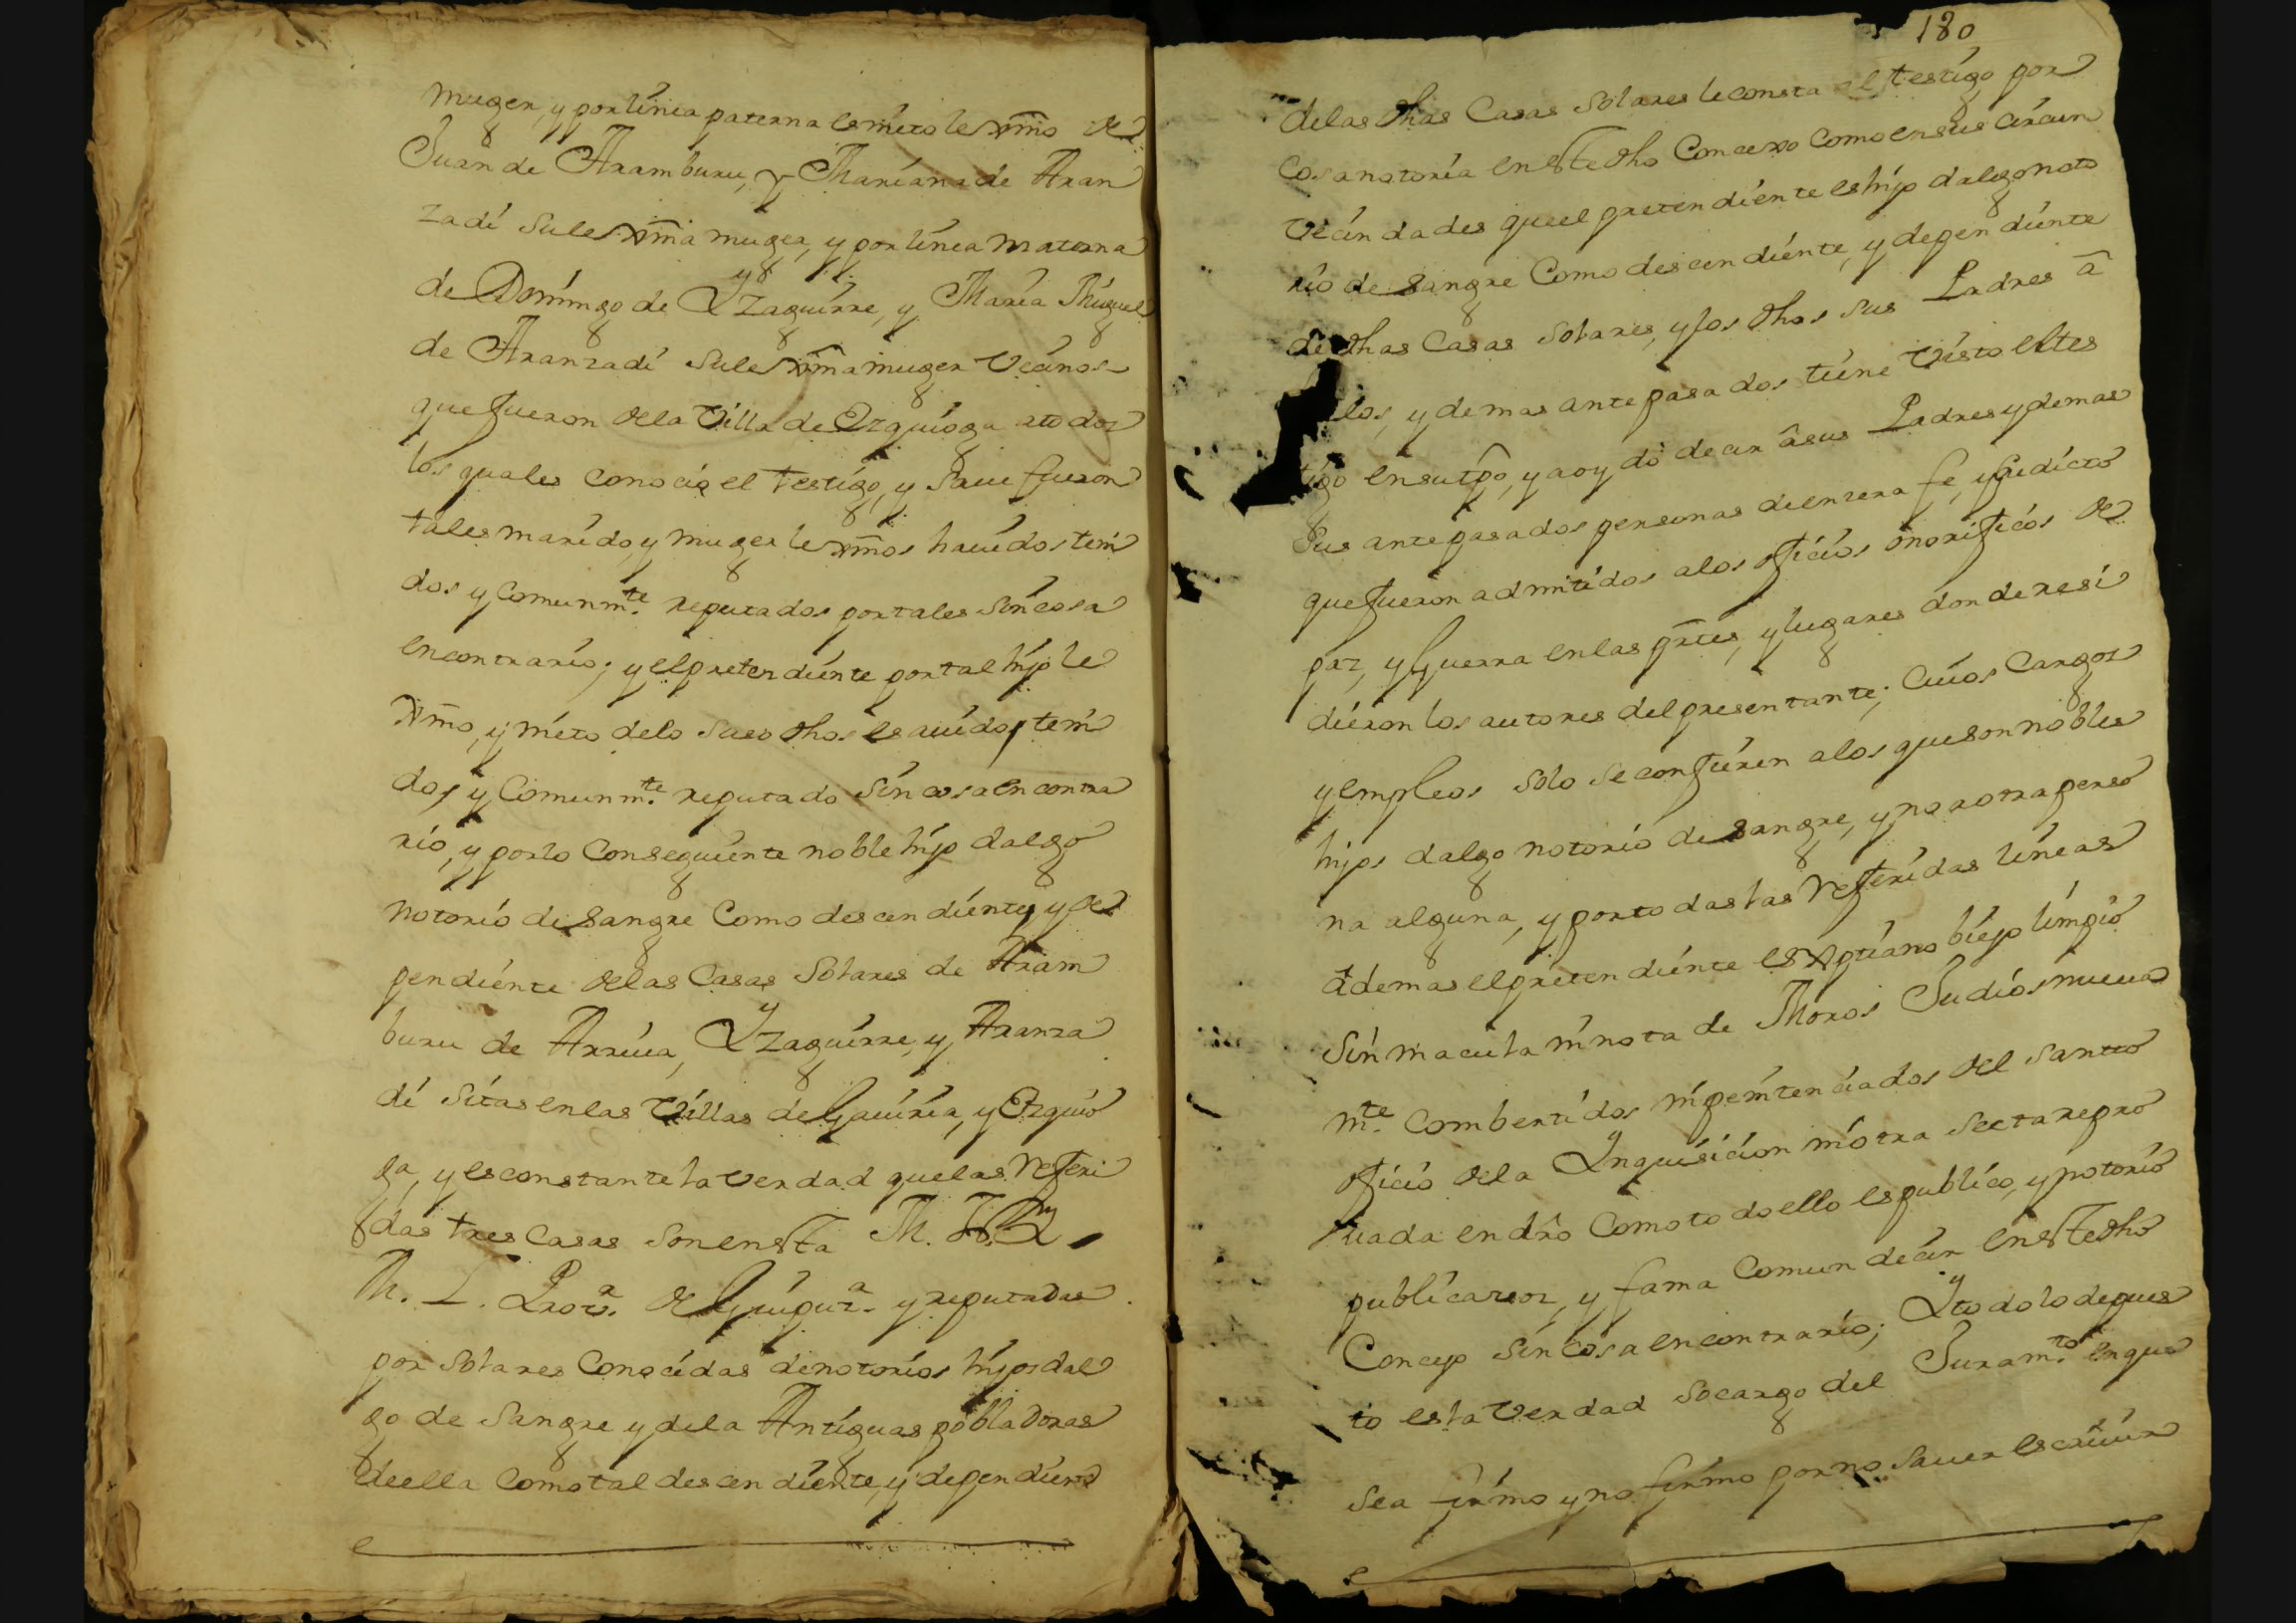 muger, y por línea paterna es nieto lexmo de
Juan de Aramburu, y Mariana de Aran
zadi su lexma muger, y por línea materna
de Domingo de Yzaguirre, y María Miguel
de Aranzadi su lexma muger vecinos
que fueron de la Villa de Ezquioga a todos
los quales conoció el testigo, y saue fueron
tales marido y muger lexmos hauidos teni
dos y comunmte. reputados por tales sin cosa
en contrario; y el pretendiente por tal hijo le
xmo, y nieto de lo suso dhos es auido, teni
do, y comunmte. reputado sin cosa en contra
rio, y por lo consequiente noble hijo dalgo
notorio de sangre como descendiente, y de
pendiente de las Casas Solares de Aram
buru de Arriua, Yzaguirre, y Aranza
di sitas en las Villas de Gauiria, y Ezquio
ga, y es constante la verdad que las referi
das tres casas son en esta M. N. Y
M. L. Prova. de Guipuza. y reputadas
por solares conocidas de notorios hijos dal
go de sangre y de la Antiguas pobladoras
de ella como tal descendiente, y dependiente
180
de las dhas Casas Solares le consta al testigo por
cosa notoria en este dho Concexo como en sus circun
vecindades que el pretendiente es hijo dalgo noto
rio de sangre como descendiente, y dependiente
de dhas Casas Solares, y los dhos sus Padres a
los, y demas antepasados tiene visto el tes
tigo en su tpo, y a oydo decir a sus Padres y demas
sus antepasados personas de entera fe, y credicto
que fueron admitidos a los oficios onorificos de
paz, y Guerra en las prtes, y lugares donde resi
dieron los autores del presentante; cuios cargos
y empleos solo se confieren a los que son nobles
hijos dalgo notorio de sangre, y no a otra perso
na alguna, y por todas las referidas líneas
Ademas el pretendiente es xptiano biejo limpio
sin macula ni nota de Moros Judios nueua
mte. combertidos ni penitenciados del santo
oficio de la Ynquisicion ni otra secta repro
uada en dro como todo ello es publico, y notorio
publica voz, y fama comun decir en este dho
Concejo sin cosa en contrario; Y todo lo depues
to es la verdad so cargo del Juramto. en que
sea firmo y no firmo por no sauer escriuir